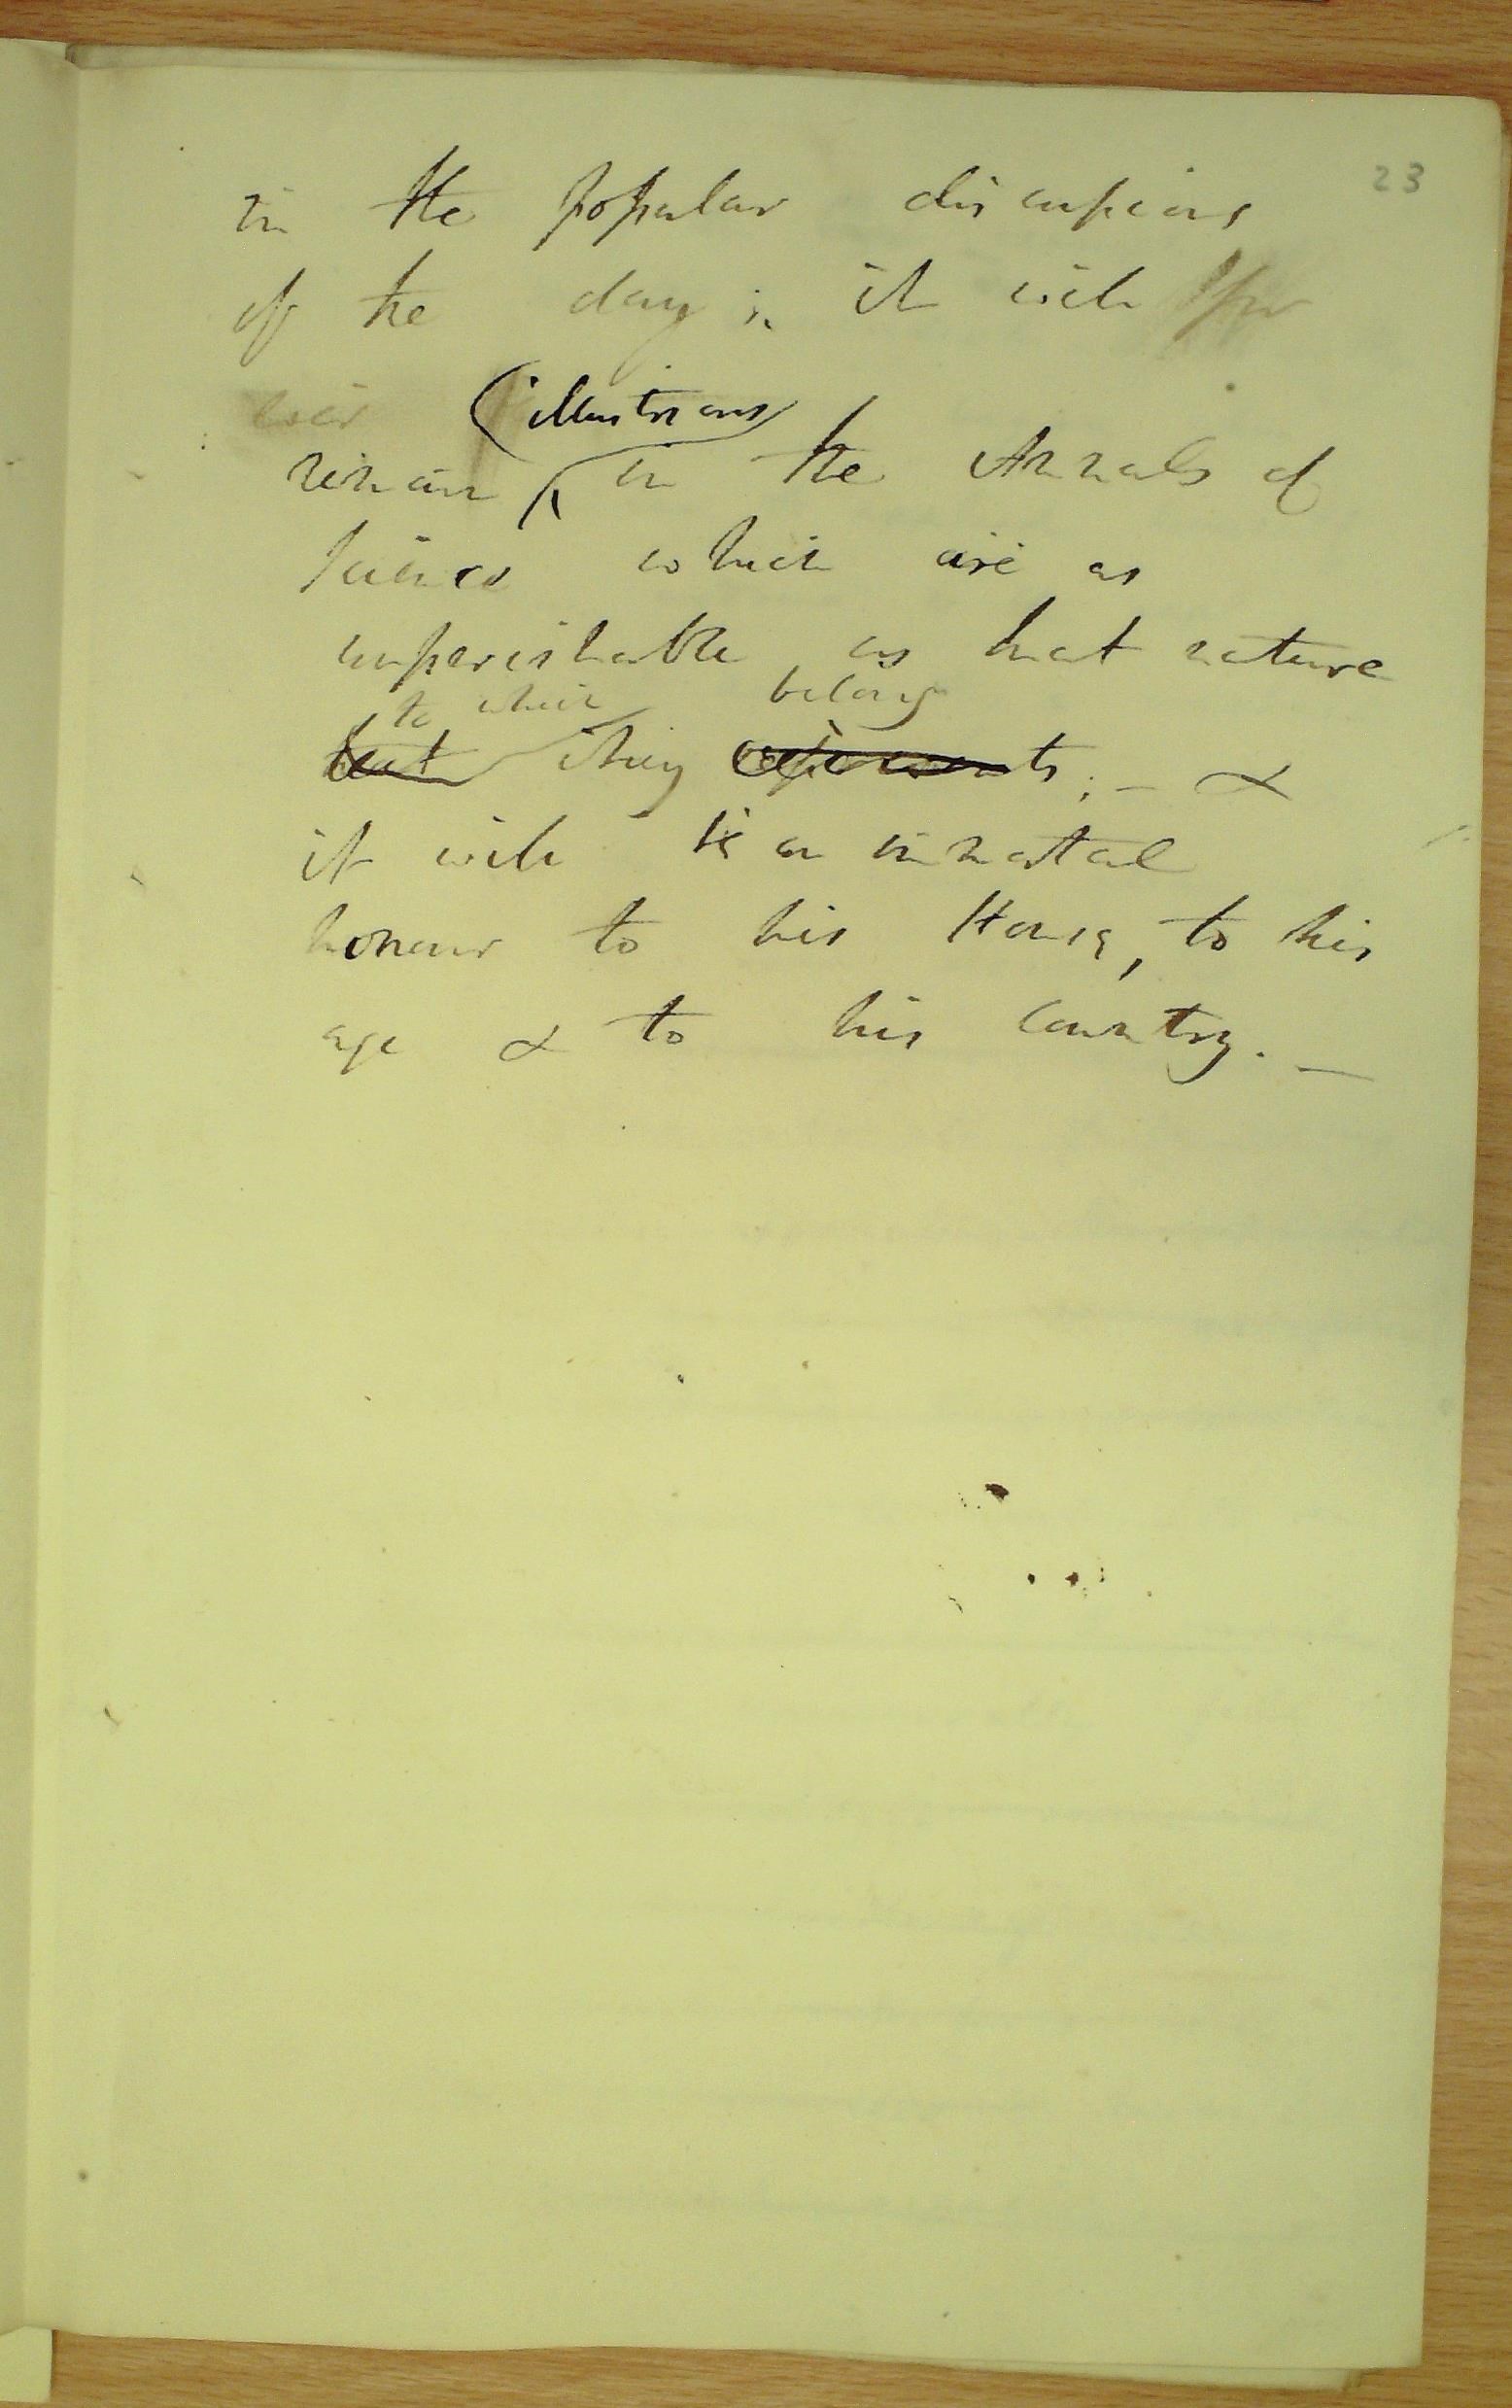 23
in the popular discussions
of the day; it will for
ever (illustrious)
remain ^ in the Annals of
Science which are as
imperishable as that nature
to which belong
that they represents; - &
it will be an immortal
honour to his House, to his
age & to his Country. _